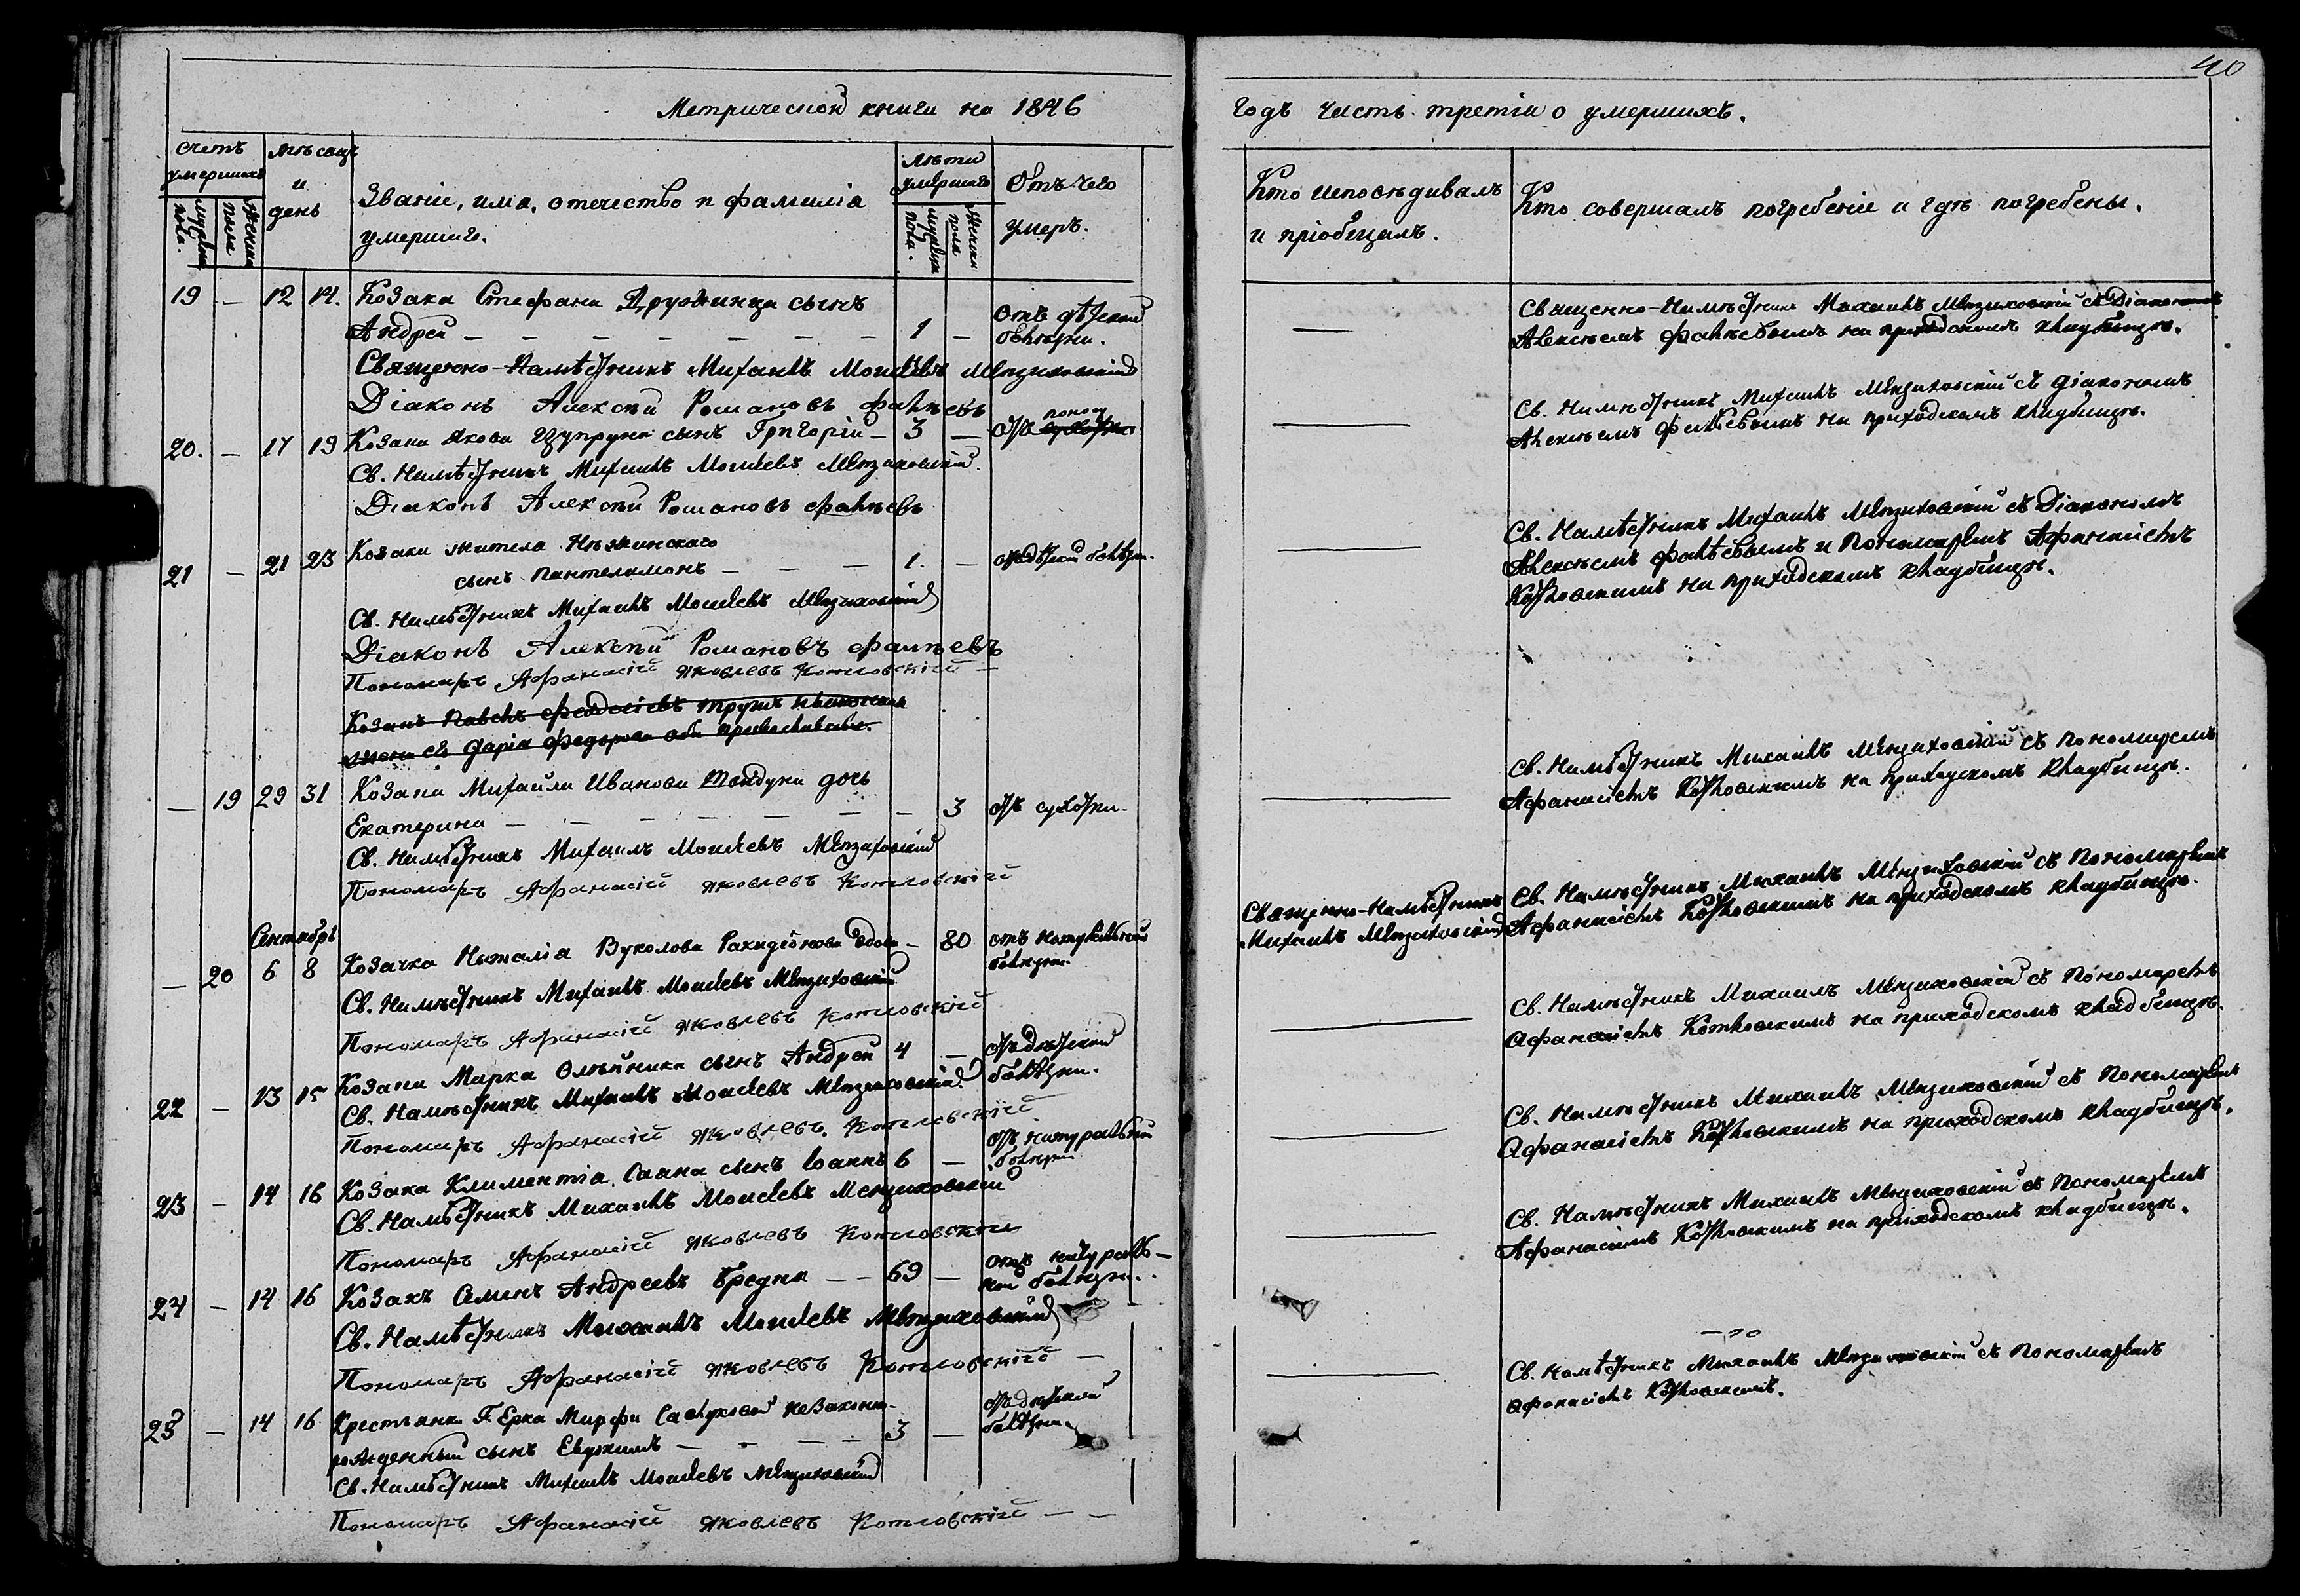 40
Метрической книги на 1846
годъ часть третія о умершихъ.
счетъ умершихъ
мужеска пола.
женска пола
мѣсяцъ и день
Званіе, имя, отечество и фамилія
умершаго.
лѣта умершаго
мужеска пола.
женска пола
Отъ чего
умеръ.
Кто исповѣдывалъ
и пріобщалъ.
Кто совершалъ погребеніе и гдѣ погребены.
19 — 12 14. Козака Стефана Дружинца сынъ
Андрей — — — — — — — 1 — отъ дѣтской болѣзни.
Священно-Намѣстникъ Михаилъ Мензиховскій съ Діакономъ
Алексѣемъ Фалѣевымъ на приходскомъ кладбищѣ.
Священно-Намѣстникъ Михаилъ Моисеевъ Мензиховскій
Діаконъ Алексѣй Романовъ Фалѣевъ
20. — 17 19 Козака Якова Цупруна сынъ Григорій — 3 — отъ поносу
Св. Намѣстникъ Михаилъ Мензиховскій съ діакономъ
Алексѣемъ Фалѣевымъ на приходскомъ кладбищѣ.
Св. Намѣстникъ Михаилъ Моисеевъ Мензиховскій.
Діаконъ Алексѣй Романовъ Фалѣевъ
21 — 21 23 Козака жителя Нѣжинскаго
сынъ Пантелимонъ — — — 1. — отъ дѣтской болѣзни.
Св. Намѣстникъ Михаилъ Мензиховскій съ Діакономъ
Алексѣемъ Фалѣевымъ и Пономаремъ Афанасіемъ
Котловскимъ на приходскомъ кладбищѣ.
Св. Намѣстникъ Михаилъ Моисеевъ Мензиховскій
Діаконъ Алексѣй Романовъ Фалѣевъ
Пономарь Афанасій Яковлевъ Котловскій —
Козакъ Павелъ Феодосіевъ
жена его Дарія Федорова оба православные.
— 19 29 31 Козака Михаила Иванова дочь
Екатерина — — — — — — — 3 отъ сухотки.
Св. Намѣстникъ Михаилъ Мензиховскій съ пономаремъ
Афанасіемъ Котловскимъ на приходскомъ кладбищѣ.
Св. Намѣстникъ Михаилъ Моисеевъ Мензиховскій
Пономарь Афанасій Яковлевъ Котловскій
Сентябрь
— 20 6 8 Козачка Наталія Вуколова вдова — 80 отъ натуральной болѣзни.
Священно-Намѣстникъ
Михаилъ Мензиховскій
Св. Намѣстникъ Михаилъ Мензиховскій съ Пономаремъ
Афанасіемъ Котловскимъ на приходскомъ кладбищѣ.
Св. Намѣстникъ Михаилъ Моисеевъ Мензиховскій
Пономарь Афанасій Яковлевъ Котловскій
22 — 13 15 Козака Марка Олѣйника сынъ Андрей 4 — отъ дѣтской болѣзни.
Св. Намѣстникъ Михаилъ Мензиховскій съ Пономаремъ
Афанасіемъ Котловскимъ на приходскомъ кладбищѣ.
Св. Намѣстникъ Михаилъ Моисеевъ Мензиховскій.
Пономарь Афанасій Яковлевъ Котловскій
23 — 14 16 Козака Климентія Саяна сынъ Іоаннъ 6 — отъ натуральной болѣзни
Св. Намѣстникъ Михаилъ Мензиховскій съ Пономаремъ
Афанасіемъ Котловскимъ на приходскомъ кладбищѣ.
Св. Намѣстникъ Михаилъ Моисеевъ Мензиховскій
Пономарь Афанасій Яковлевъ Котловскій
24 — 14 16 Козакъ Семенъ Андреевъ Бредня — — 69 — отъ натуральной болѣзни.
Св. Намѣстникъ Михаилъ Мензиховскій съ Пономаремъ
Афанасіемъ Котловскимъ на приходскомъ кладбищѣ.
Св. Намѣстникъ Михаилъ Моисеевъ Мензиховскій
Пономарь Афанасій Яковлевъ Котловскій —
25 — 14 16 Крестьянки Г. Ерка Марфы незаконно-
рожденный сынъ Евдокимъ — — — — 3 — отъ дѣтской болѣзни.
Св. Намѣстникъ Михаилъ Мензиховскій съ Пономаремъ
Афанасіемъ Котловскимъ.
Св. Намѣстникъ Михаилъ Моисеевъ Мензиховскій
Пономарь Афанасій Яковлевъ Котловскій — —